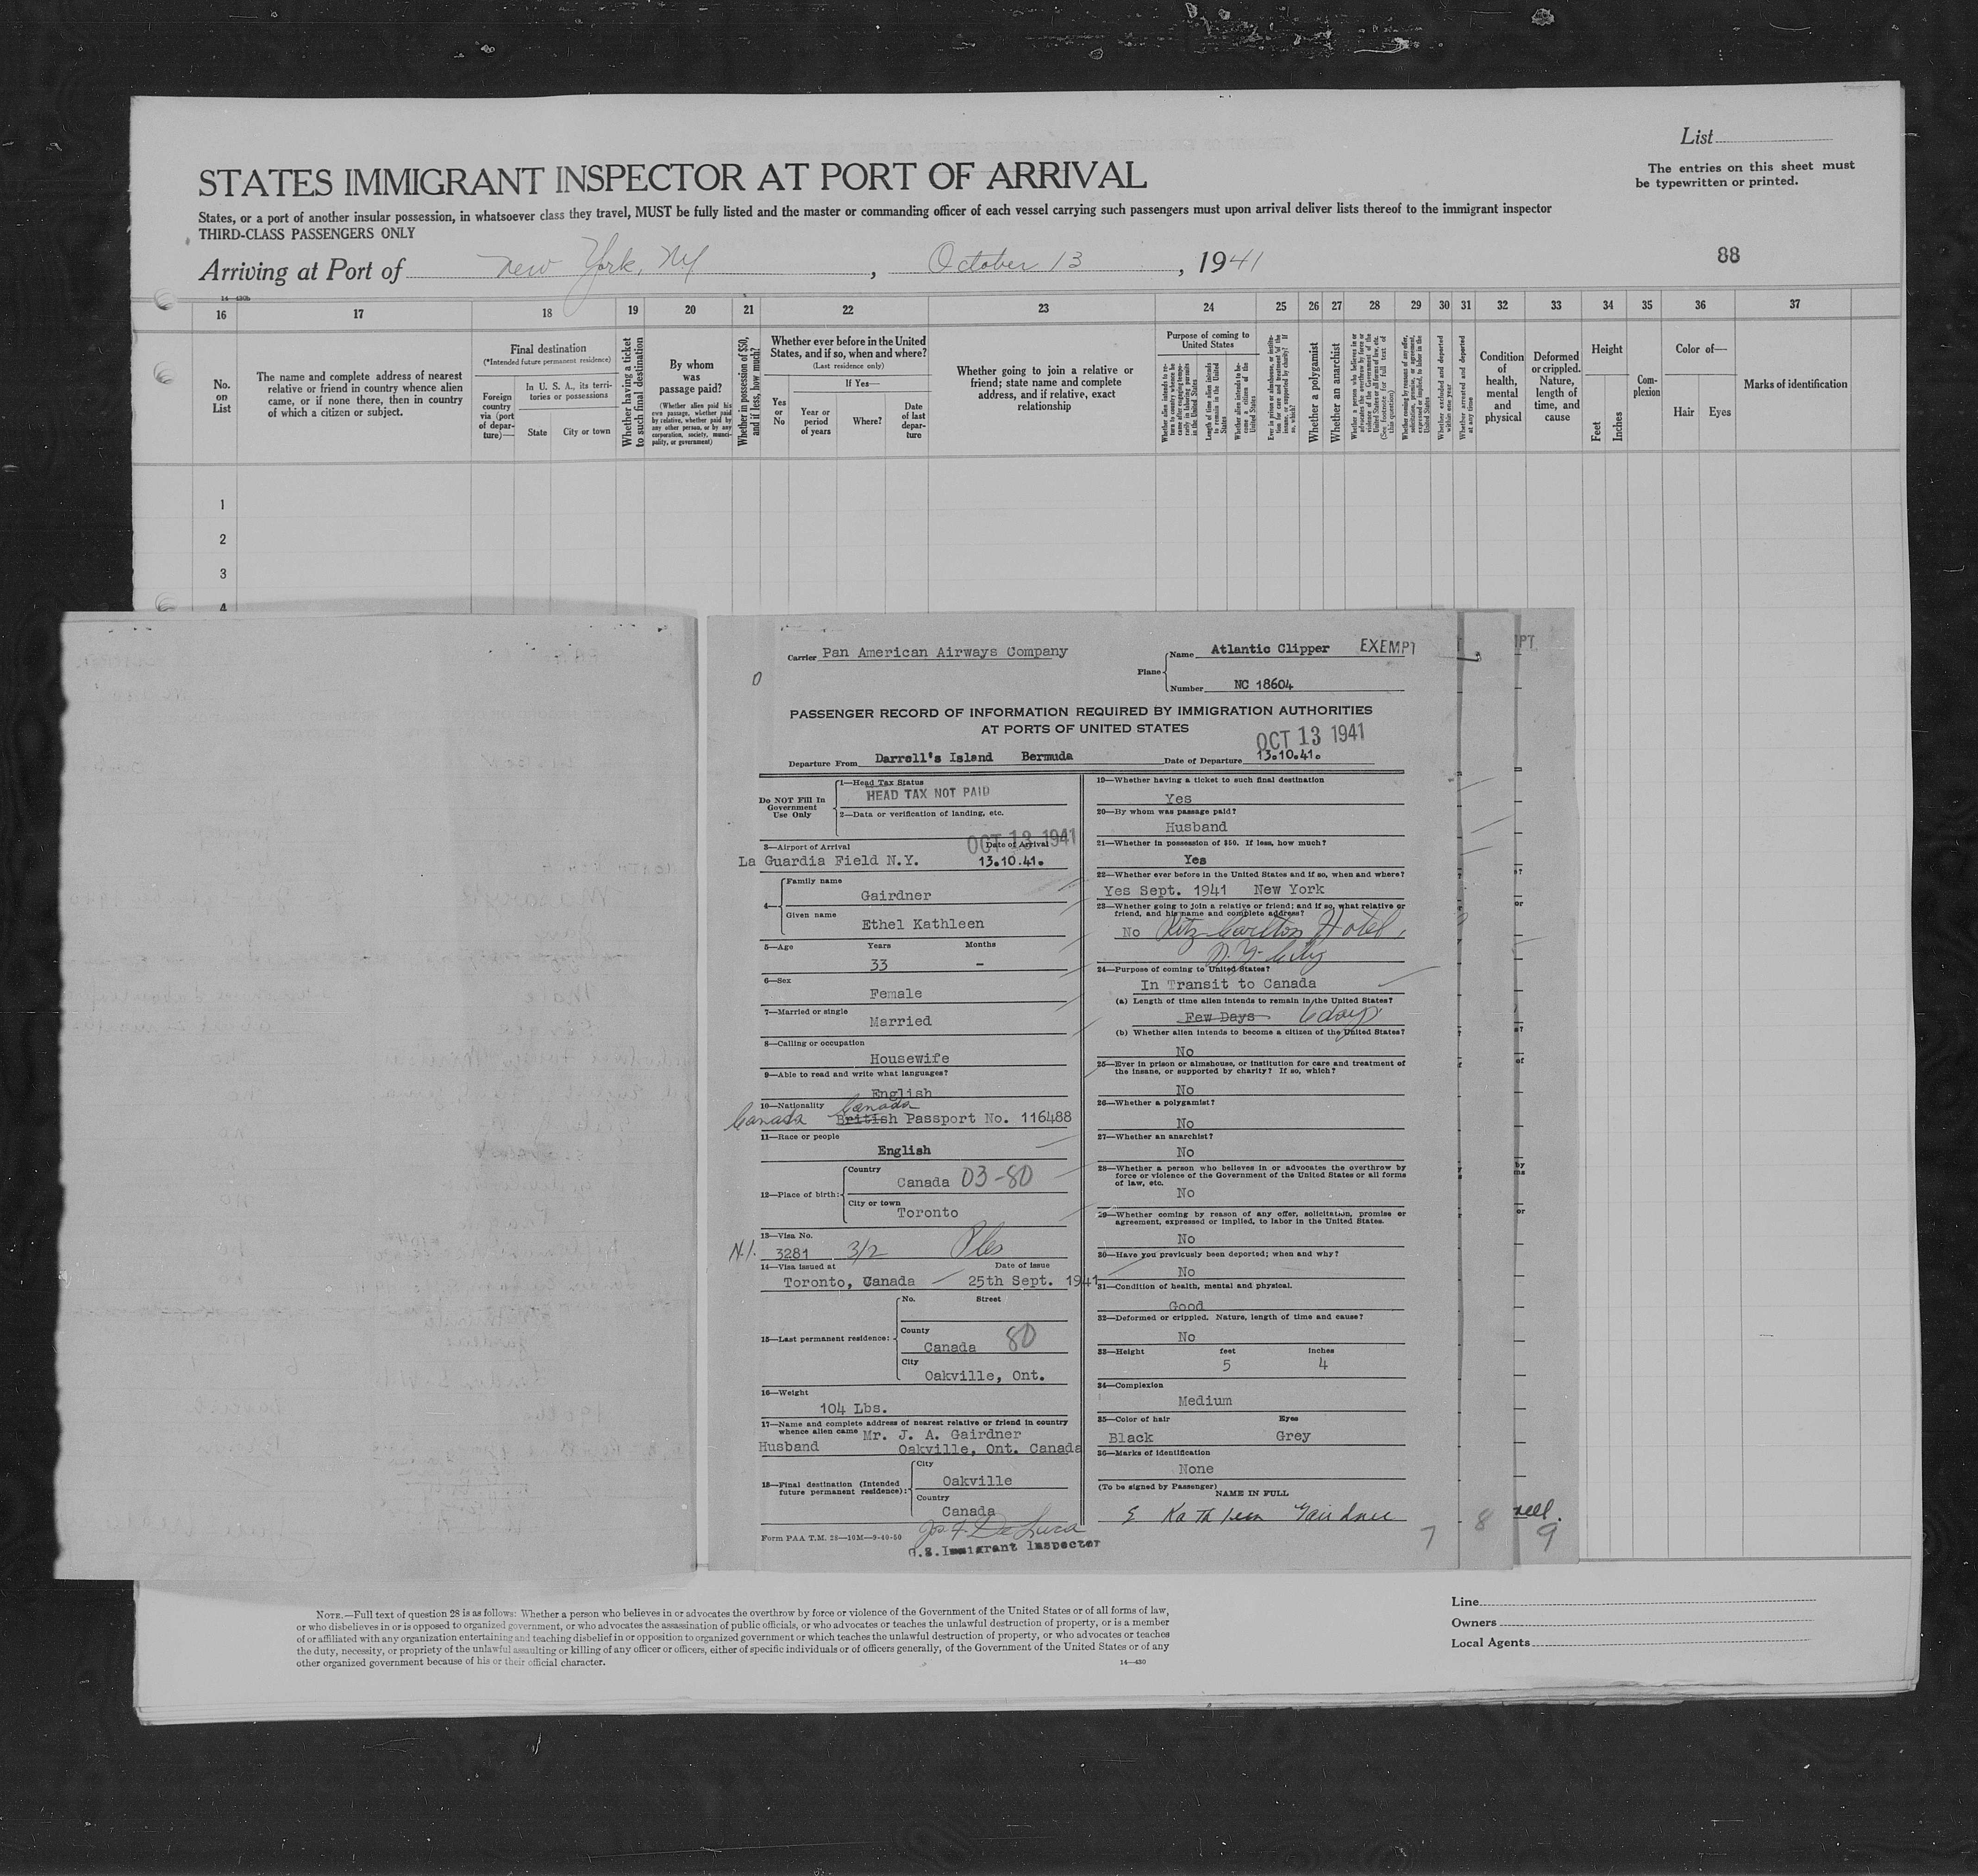 List
The entries on this sheet must
be typewritten or printed.
STATES IMMIGRANT INSPECTOR AT PORT OF ARRIVAL
States, or a port of another insular possession, in whatsoever class they travel, MUST be fully listed and the master or commanding officer of each vessel carrying such passengers must upon arrival deliver lists thereof to the immigrant inspector
THIRD-CLASS PASSENGERS ONLY
Arriving at Port of New York, NY, October 13, 1941
88
16 17 18 19 20 21 22 23 24 25 26 27 28 29 30 31 32 33 34 35 36 37
No.
on
List
The name and complete address of nearest
relative or friend in country whence alien
came, or if none there, then in country
of which a citizen or subject.
Final destination
(*Intended future permanent residence)
Foreign
country
via (port
of depar-
ture)—
In U. S. A., its terri-
tories or possessions
State
City or town
Whether having a ticket
to such final destination
By whom
was
passage paid?
(Whether alien paid his
own passage, whether paid
by relative, whether paid by
any other person, or by any
corporation, society, munici-
pality, or government)
Whether in possession of $50,
and if less, how much?
Whether ever before in the United
States, and if so, when and where?
(Last residence only)
Yes
or
No
If Yes—
Year or
period
of years
Where?
Date
of last
depar-
ture
Whether going to join a relative or
friend; state name and complete
address, and if relative, exact
relationship
Purpose of coming to
United States
Whether a polygamist
Whether an anarchist
Condition
of
health,
mental
and
physical
Deformed
or crippled.
Nature,
length of
time, and
cause
Height
Feet
Inches
Com-
plexion
Color of—
Hair
Eyes
Marks of identification
1
2
3
4
Carrier Pan American Airways Company
Plane
Name Atlantic Clipper EXEMPT
Number NC 18604
PASSENGER RECORD OF INFORMATION REQUIRED BY IMMIGRATION AUTHORITIES
AT PORTS OF UNITED STATES
OCT 13 1941
Departure From Darrell's Island Bermuda Date of Departure 13.10.41.
Do NOT Fill In
Government
Use Only
1—Head Tax Status
HEAD TAX NOT PAID
2—Data or verification of landing, etc.
OCT 13 1941
3—Airport of Arrival Date of Arrival
La Guardia Field N.Y. 13.10.41.
4—
Family name
Gairdner
Given name
Ethel Kathleen
5—Age Years Months
33 –
6—Sex
Female
7—Married or single
Married
8—Calling or occupation
Housewife
9—Able to read and write what languages?
English
10—Nationality Canada
Canada British Passport No. 116488
11—Race or people
English
12—Place of birth:
Country
Canada 03-80
City or town
Toronto
13—Visa No.
3281 3/2
14—Visa issued at Date of issue
Toronto, Canada 25th Sept. 1941
15—Last permanent residence:
No. Street
County
Canada 80
City
Oakville, Ont.
16—Weight
104 Lbs.
17—Name and complete address of nearest relative or friend in country
whence alien came Mr. J. A. Gairdner
Husband Oakville, Ont. Canada
18—Final destination (Intended
future permanent residence):
City
Oakville
Country
Canada
Form PAA T.M. 28—10M—9-40-50
U.S. Immigrant Inspector
19—Whether having a ticket to such final destination
Yes
20—By whom was passage paid?
Husband
21—Whether in possession of $50. If less, how much?
Yes
22—Whether ever before in the United States and if so, when and where?
Yes Sept. 1941 New York
23—Whether going to join a relative or friend; and if so, what relative or
friend, and his name and complete address?
No Ritz Carlton Hotel,
N.Y. City
24—Purpose of coming to United States?
In Transit to Canada
(a) Length of time alien intends to remain in the United States?
Few Days 6 days
(b) Whether alien intends to become a citizen of the United States?
No
25—Ever in prison or almshouse, or institution for care and treatment of
the insane, or supported by charity? If so, which?
No
26—Whether a polygamist?
No
27—Whether an anarchist?
No
28—Whether a person who believes in or advocates the overthrow by
force or violence of the Government of the United States or all forms
of law, etc.
No
29—Whether coming by reason of any offer, solicitation, promise or
agreement, expressed or implied, to labor in the United States.
No
30—Have you previously been deported; when and why?
No
31—Condition of health, mental and physical.
Good
32—Deformed or crippled. Nature, length of time and cause?
No
33—Height feet inches
5 4
34—Complexion
Medium
35—Color of hair Eyes
Black Grey
36—Marks of identification
None
(To be signed by Passenger)
NAME IN FULL
E Kathleen Gairdner
7
8
9
NOTE.—Full text of question 28 is as follows: Whether a person who believes in or advocates the overthrow by force or violence of the Government of the United States or of all forms of law,
or who disbelieves in or is opposed to organized government, or who advocates the assassination of public officials, or who advocates or teaches the unlawful destruction of property, or is a member
of or affiliated with any organization entertaining and teaching disbelief in or opposition to organized government or which teaches the unlawful destruction of property, or who advocates or teaches
the duty, necessity, or propriety of the unlawful assaulting or killing of any officer or officers, either of specific individuals or of officers generally, of the Government of the United States or of any
other organized government because of his or their official character.
14—430
Line
Owners
Local Agents